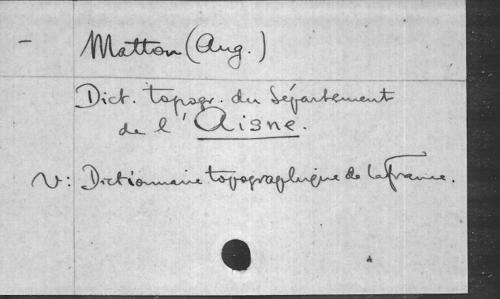 - Matton (Aug.)
Dict. topogr. du Département
de l'Aisne.
V: Dictionnaire topographique de la France.